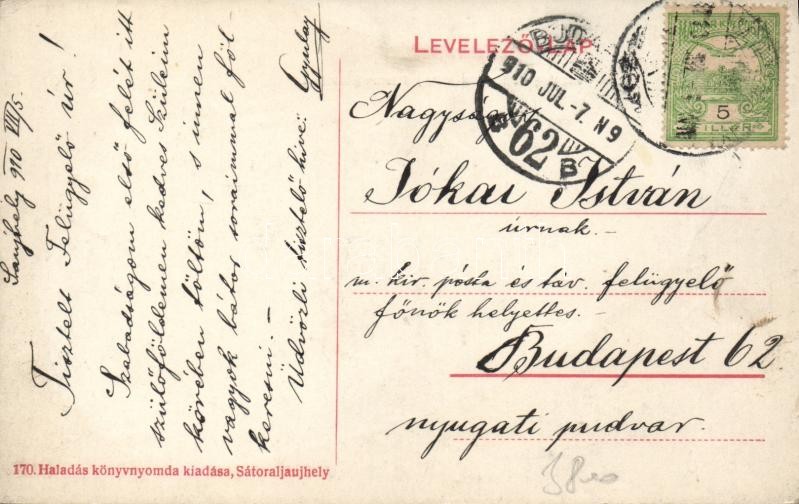 LEVELEZŐ-LAP
Saujhely 910 VII/5.
Tisztelt Felügyelő úr!
Szabadságom első felét itt
szülőföldemen kedves Szüleim
körében töltöm, s innen
vagyok bátor soraimmal föl
keresni. –
Üdvözli tisztelő híve:
Gyulay
Nagyságos
Jókai István
úrnak. –
m. kir. posta és táv. felügyelő
főnök helyettes. –
Budapest 62.
nyugati pudvar.
910 JUL -7. N 9
62
B
5
FILLÉR
170. Haladás könyvnyomda kiadása, Sátoraljaujhely